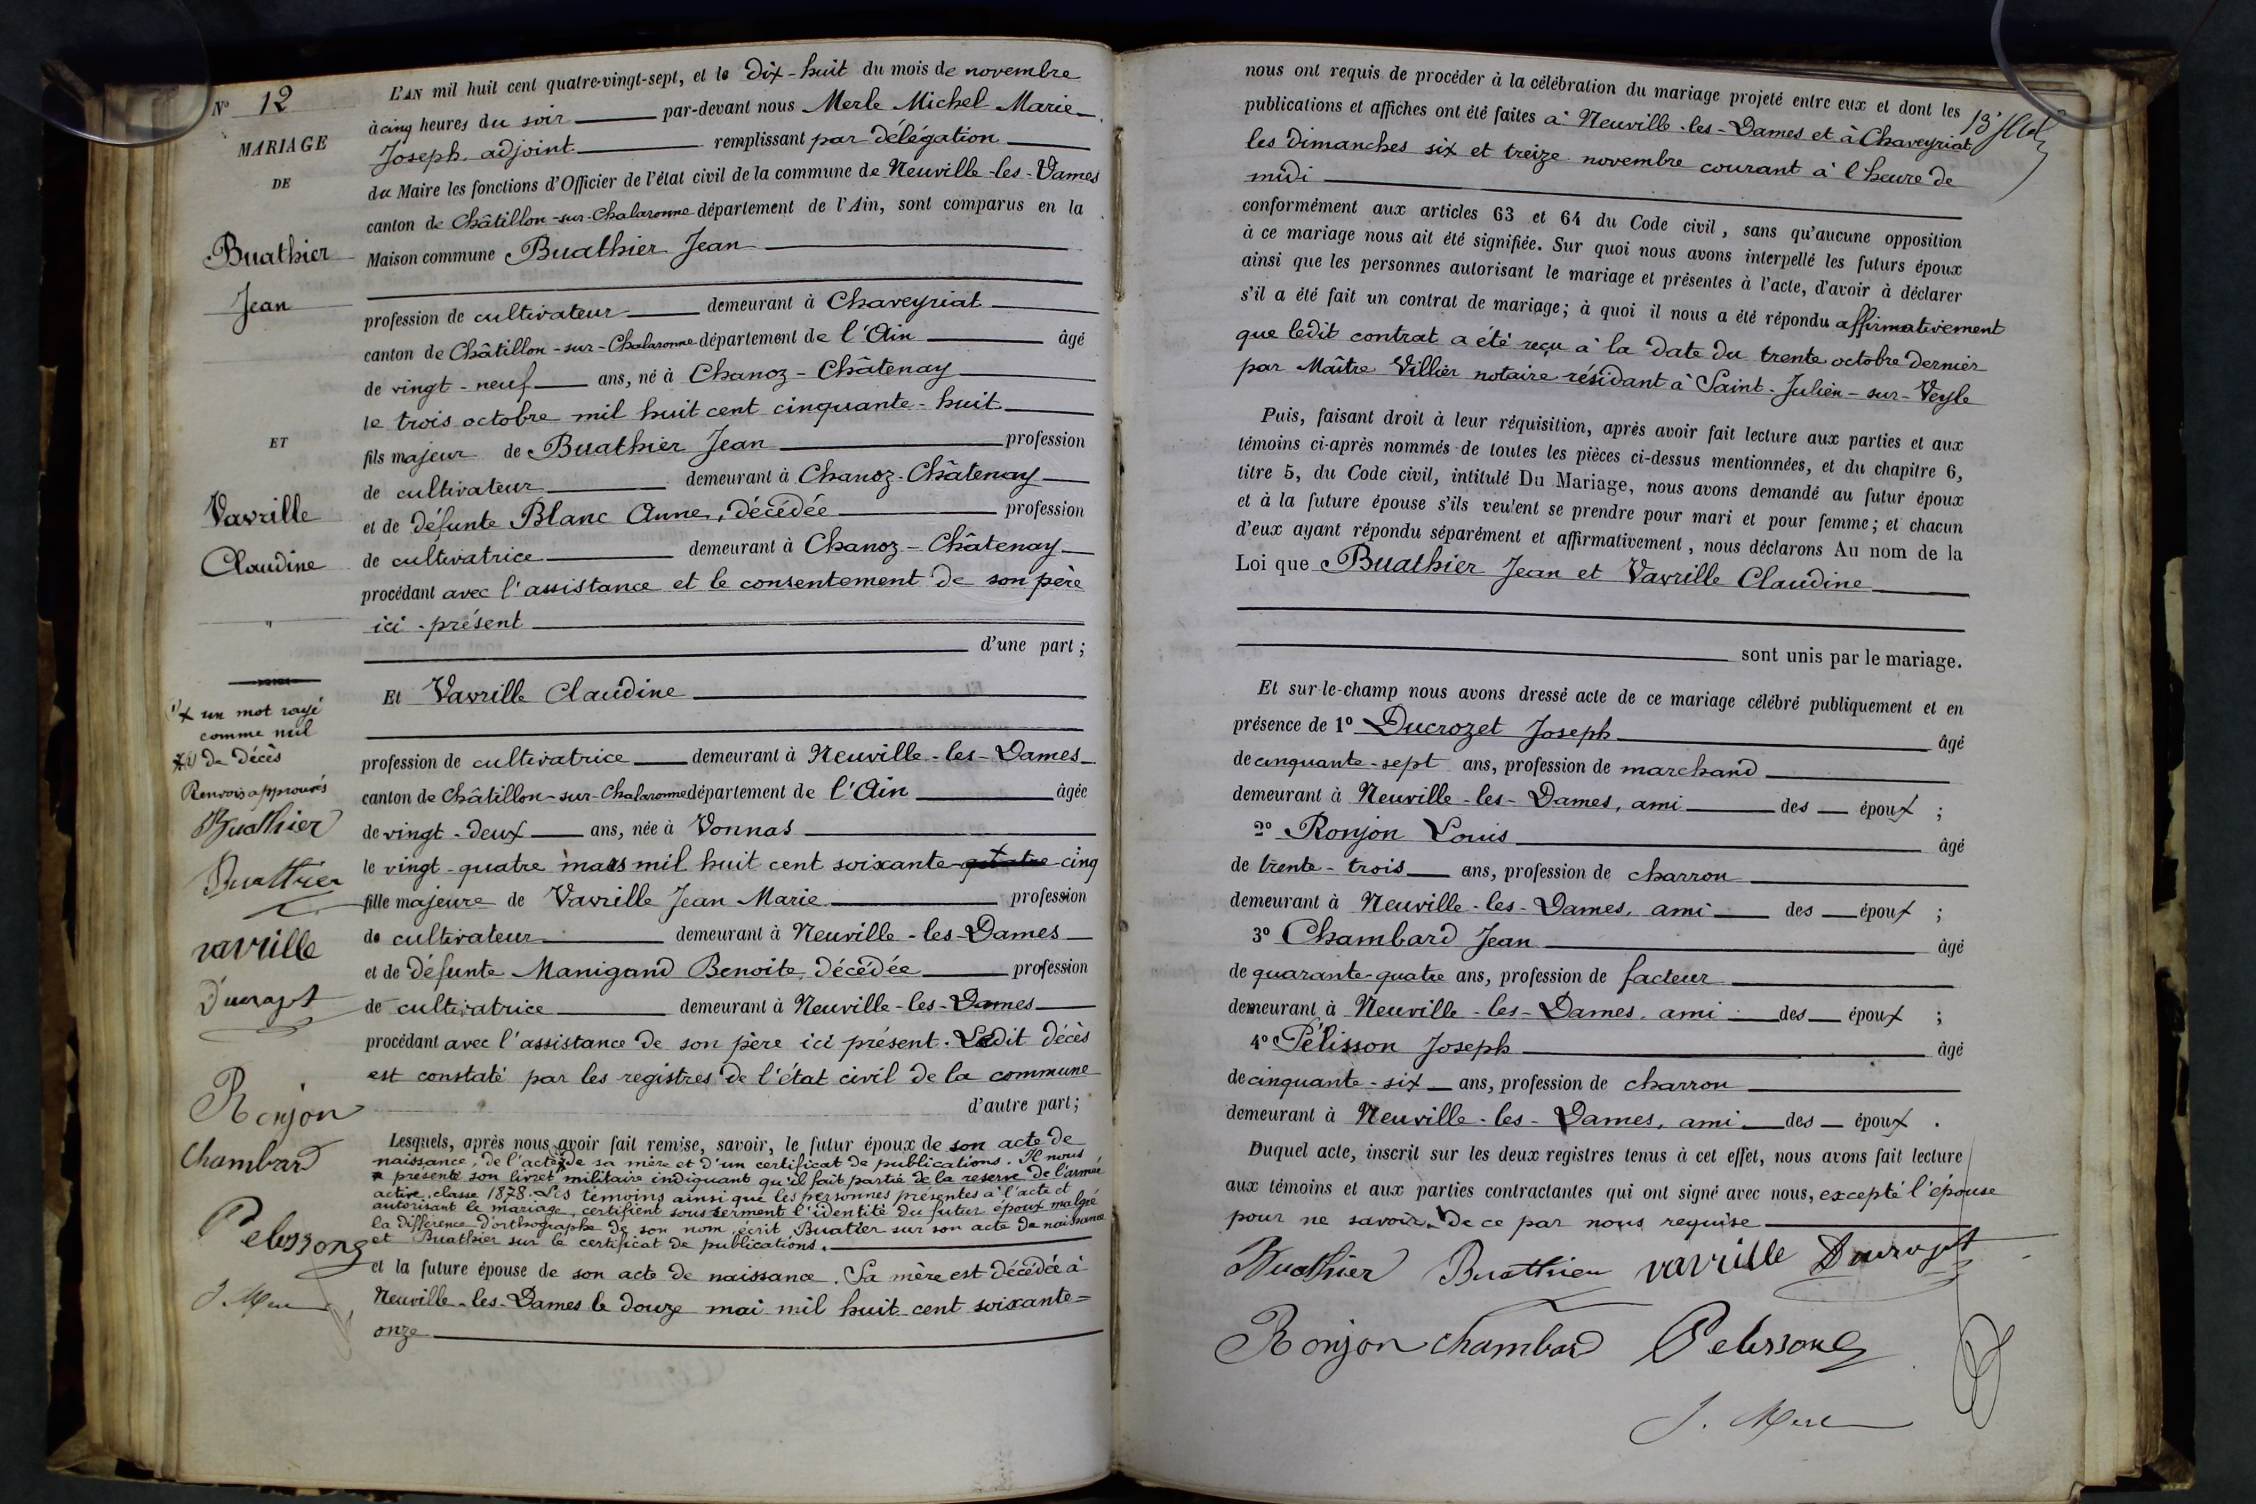 N° 12
MARIAGE
DE
Buathier
Jean
ET
Vavrille
Claudine
"
1) x un mot rayé
comme nul
x(1) de décès
Renvois approuvés
Buathier
Buathier
vavrille
Ducrozet
Ronjon
Chambard
Pelisson
J. Merle
L'AN mil huit cent quatre-vingt-sept, et le dix-huit du mois de novembre
à cinq heures du soir par-devant nous Merle Michel Marie
Joseph, adjoint remplissant par délégation
du Maire les fonctions d'Officier de l'état civil de la commune de Neuville-les-Dames
canton de Châtillon-sur-Chalaronne département de l'Ain, sont comparus en la
Maison commune Buathier Jean
profession de cultivateur demeurant à Chaveyriat
canton de Châtillon-sur-Chalaronne département de l'Ain âgé
de vingt-neuf ans, né à Chanoz-Châtenay
le trois octobre mil huit cent cinquante-huit
fils majeur de Buathier Jean profession
de cultivateur demeurant à Chanoz-Châtenay
et de défunte Blanc Anne, décédée profession
de cultivatrice demeurant à Chanoz-Châtenay
procédant avec l'assistance et le consentement de son père
ici présent
d'une part ;
Et Vavrille Claudine
profession de cultivatrice demeurant à Neuville-les-Dames
canton de Châtillon-sur-Chalaronne département de l'Ain âgée
de vingt-deux ans, née à Vonnas
le vingt-quatre mars mil huit cent soixante-quatre cinq
fille majeure de Vavrille Jean Marie profession
de cultivateur demeurant à Neuville-les-Dames
et de défunte Manigand Benoite, décédée profession
de cultivatrice demeurant à Neuville-les-Dames
procédant avec l'assistance de son père ici présent. Ledit décès
est constaté par les registres de l'état civil de la commune
d'autre part ;
Lesquels, après nous avoir fait remise, savoir, le futur époux de son acte de
naissance, de l'acte x de sa mère et d'un certificat de publications. Il nous
a présenté son livret militaire indiquant qu'il fait partie de la réserve de l'armée
active, classe 1878. Les témoins ainsi que les personnes présentes à l'acte et
autorisant le mariage, certifient sous serment l'identité du futur époux malgré
la différence d'orthographe de son nom, écrit Buatier sur son acte de naissance
et Buathier sur le certificat de publications.
et la future épouse de son acte de naissance. Sa mère est décédée à
Neuville-les-Dames le douze mai mil huit cent soixante-
onze
nous ont requis de procéder à la célébration du mariage projeté entre eux et dont les
publications et affiches ont été faites à Neuville-les-Dames et à Chaveyriat
les dimanches six et treize novembre courant à l'heure de
midi
conformément aux articles 63 et 64 du Code civil, sans qu'aucune opposition
à ce mariage nous ait été signifiée. Sur quoi nous avons interpellé les futurs époux
ainsi que les personnes autorisant le mariage et présentes à l'acte, d'avoir à déclarer
s'il a été fait un contrat de mariage ; à quoi il nous a été répondu affirmativement
que ledit contrat a été reçu à la date du trente octobre dernier
par Maître Villier notaire résidant à Saint-Julien-sur-Veyle
Puis, faisant droit à leur réquisition, après avoir fait lecture aux parties et aux
témoins ci-après nommés de toutes les pièces ci-dessus mentionnées, et du chapitre 6,
titre 5, du Code civil, intitulé Du Mariage, nous avons demandé au futur époux
et à la future épouse s'ils veulent se prendre pour mari et pour femme ; et chacun
d'eux ayant répondu séparément et affirmativement, nous déclarons Au nom de la
Loi que Buathier Jean et Vavrille Claudine
sont unis par le mariage.
Et sur-le-champ nous avons dressé acte de ce mariage célébré publiquement et en
présence de 1° Ducrozet Joseph âgé
de cinquante-sept ans, profession de marchand
demeurant à Neuville-les-Dames, ami des époux ;
2° Ronjon Louis âgé
de trente-trois ans, profession de charron
demeurant à Neuville-les-Dames, ami des époux ;
3° Chambard Jean âgé
de quarante-quatre ans, profession de facteur
demeurant à Neuville-les-Dames, ami des époux ;
4° Pélisson Joseph âgé
de cinquante-six ans, profession de charron
demeurant à Neuville-les-Dames, ami des époux.
Duquel acte, inscrit sur les deux registres tenus à cet effet, nous avons fait lecture
aux témoins et aux parties contractantes qui ont signé avec nous, excepté l'épouse
pour ne savoir, de ce par nous requise
Buathier Buathier vavrille Ducrozet
Ronjon Chambard Pelisson
J. Merle